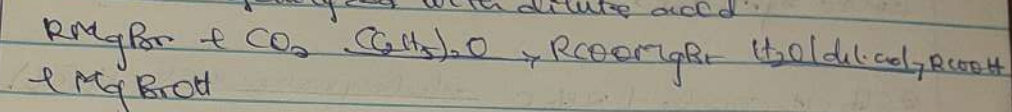 with dilute acid.
RMgBr + CO₂ (C₂H₅)₂O → RCOOMgBr H₂O/dil.acid → RCOOH
+ MgBrOH